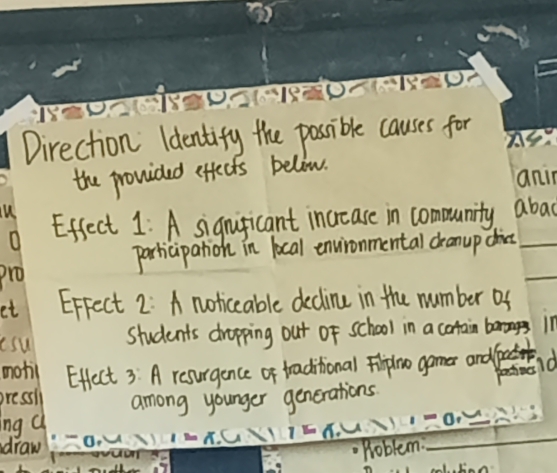 Direction: Identify the possible causes for
the provided effects below.
Effect 1: A significant increase in community
participation in local environmental cleanup drive
Effect 2: A noticeable decline in the number of
students dropping out of school in a certain
Effect 3: A resurgence of traditional Filipino games and
among younger generations.
anim
abac
in
pro
et
moti
pressi
draw
• Problem: